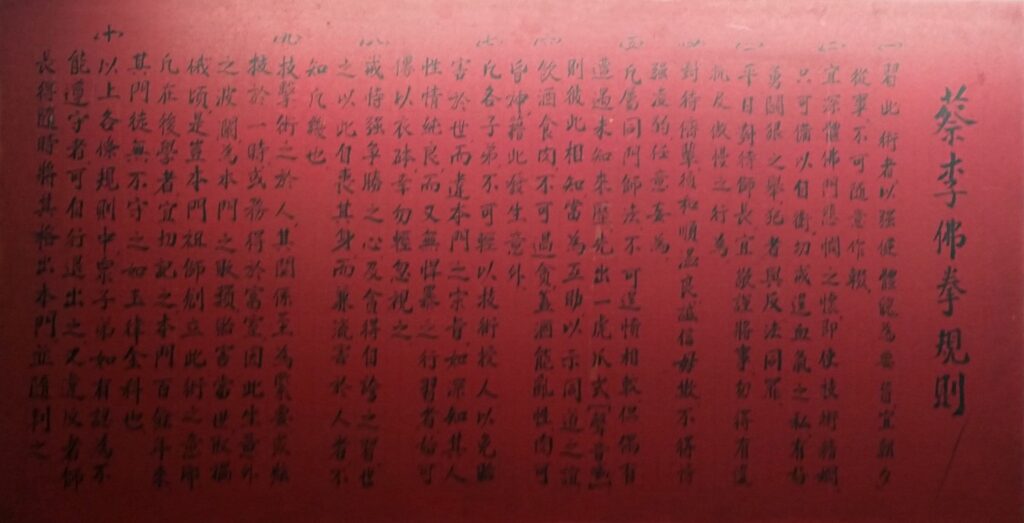 蔡李佛拳規則
(一) 習此術者以強健體魄為要旨宜朝夕
從事不可隨意作輟
(二) 宜深體佛門悲憫之懷即使技術精嫻
只可備以自衛切戒逞血氣之私有好
勇鬪狠之舉犯者與反法同罪
(三) 平日對待師長宜敬謹將事勿得有違
抗及傲慢之行為
(四) 對待儕輩須和順溫良誠信毋欺不得恃
強凌弱任意妄為
(五) 凡屬同門師法不可逞憤相較倘偶有
遭遇未知來歷先出一虎爪式
則彼此相知當為互助以示同道之誼
(六) 飲酒食肉不可過貪蓋酒能亂性肉可
昏神藉此發生意外
(七) 凡各子弟不可輕以技術授人以免貽
害於世而違本門之宗旨如深知其人
性情純良而又無悍暴之行習者始可
傳以衣砵幸勿輕忽視之
(八) 戒恃強爭勝之心及貪得自誇之習世
之以此自喪其身而兼流害於人者不
知凡幾也
(九) 技擊術之於人其關係至為緊要或炫
技於一時或務得於富室因此生意外
之波瀾為本門之敗類貽害當世取禍
俄頃是豈本門祖師創立此術之意耶
凡在後學者宜切記之本門百餘年來
其門徒無不守之如玉律金科也
(十) 以上各條規則中眾子弟如有認為不
能遵守者可自行退出之凡違反者師
長得隨時將其格出本門並隨判之